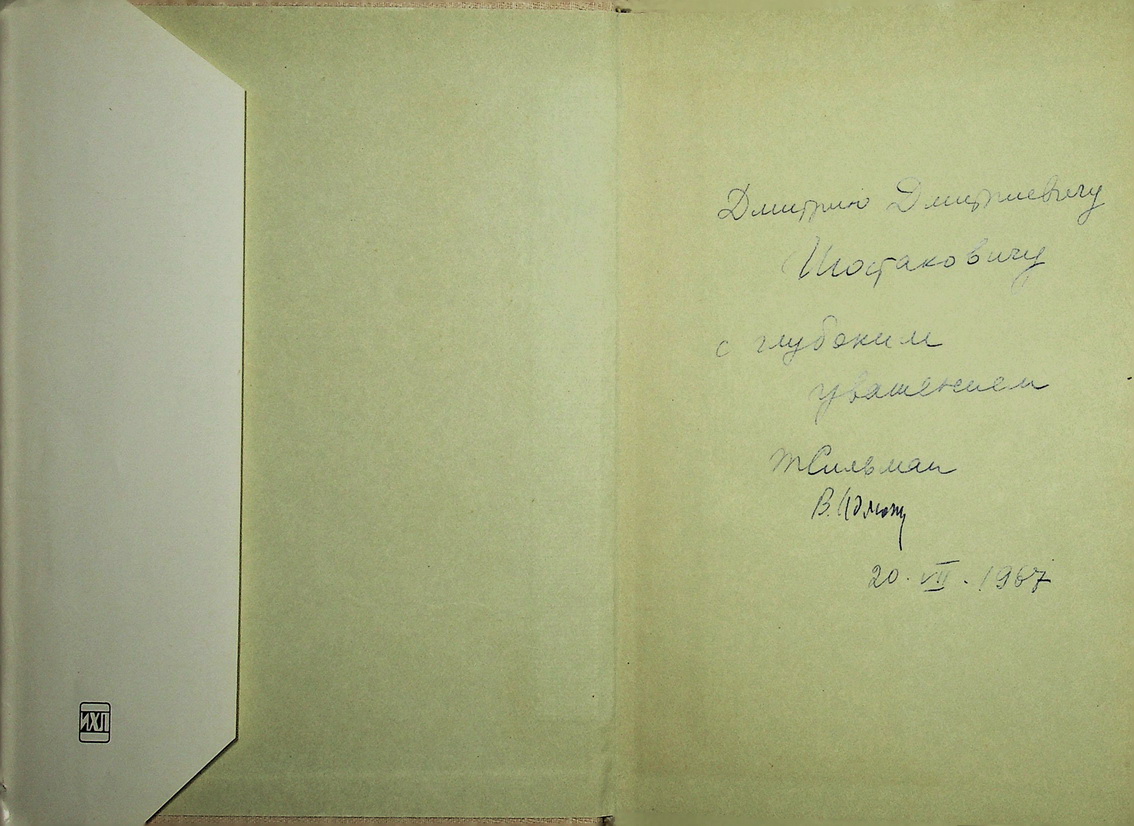 ИХЛ
Дмитрию Дмитриевичу
Шостаковичу
с глубоким
уважением
ТСильман
В. Адмони
20. VII. 1967